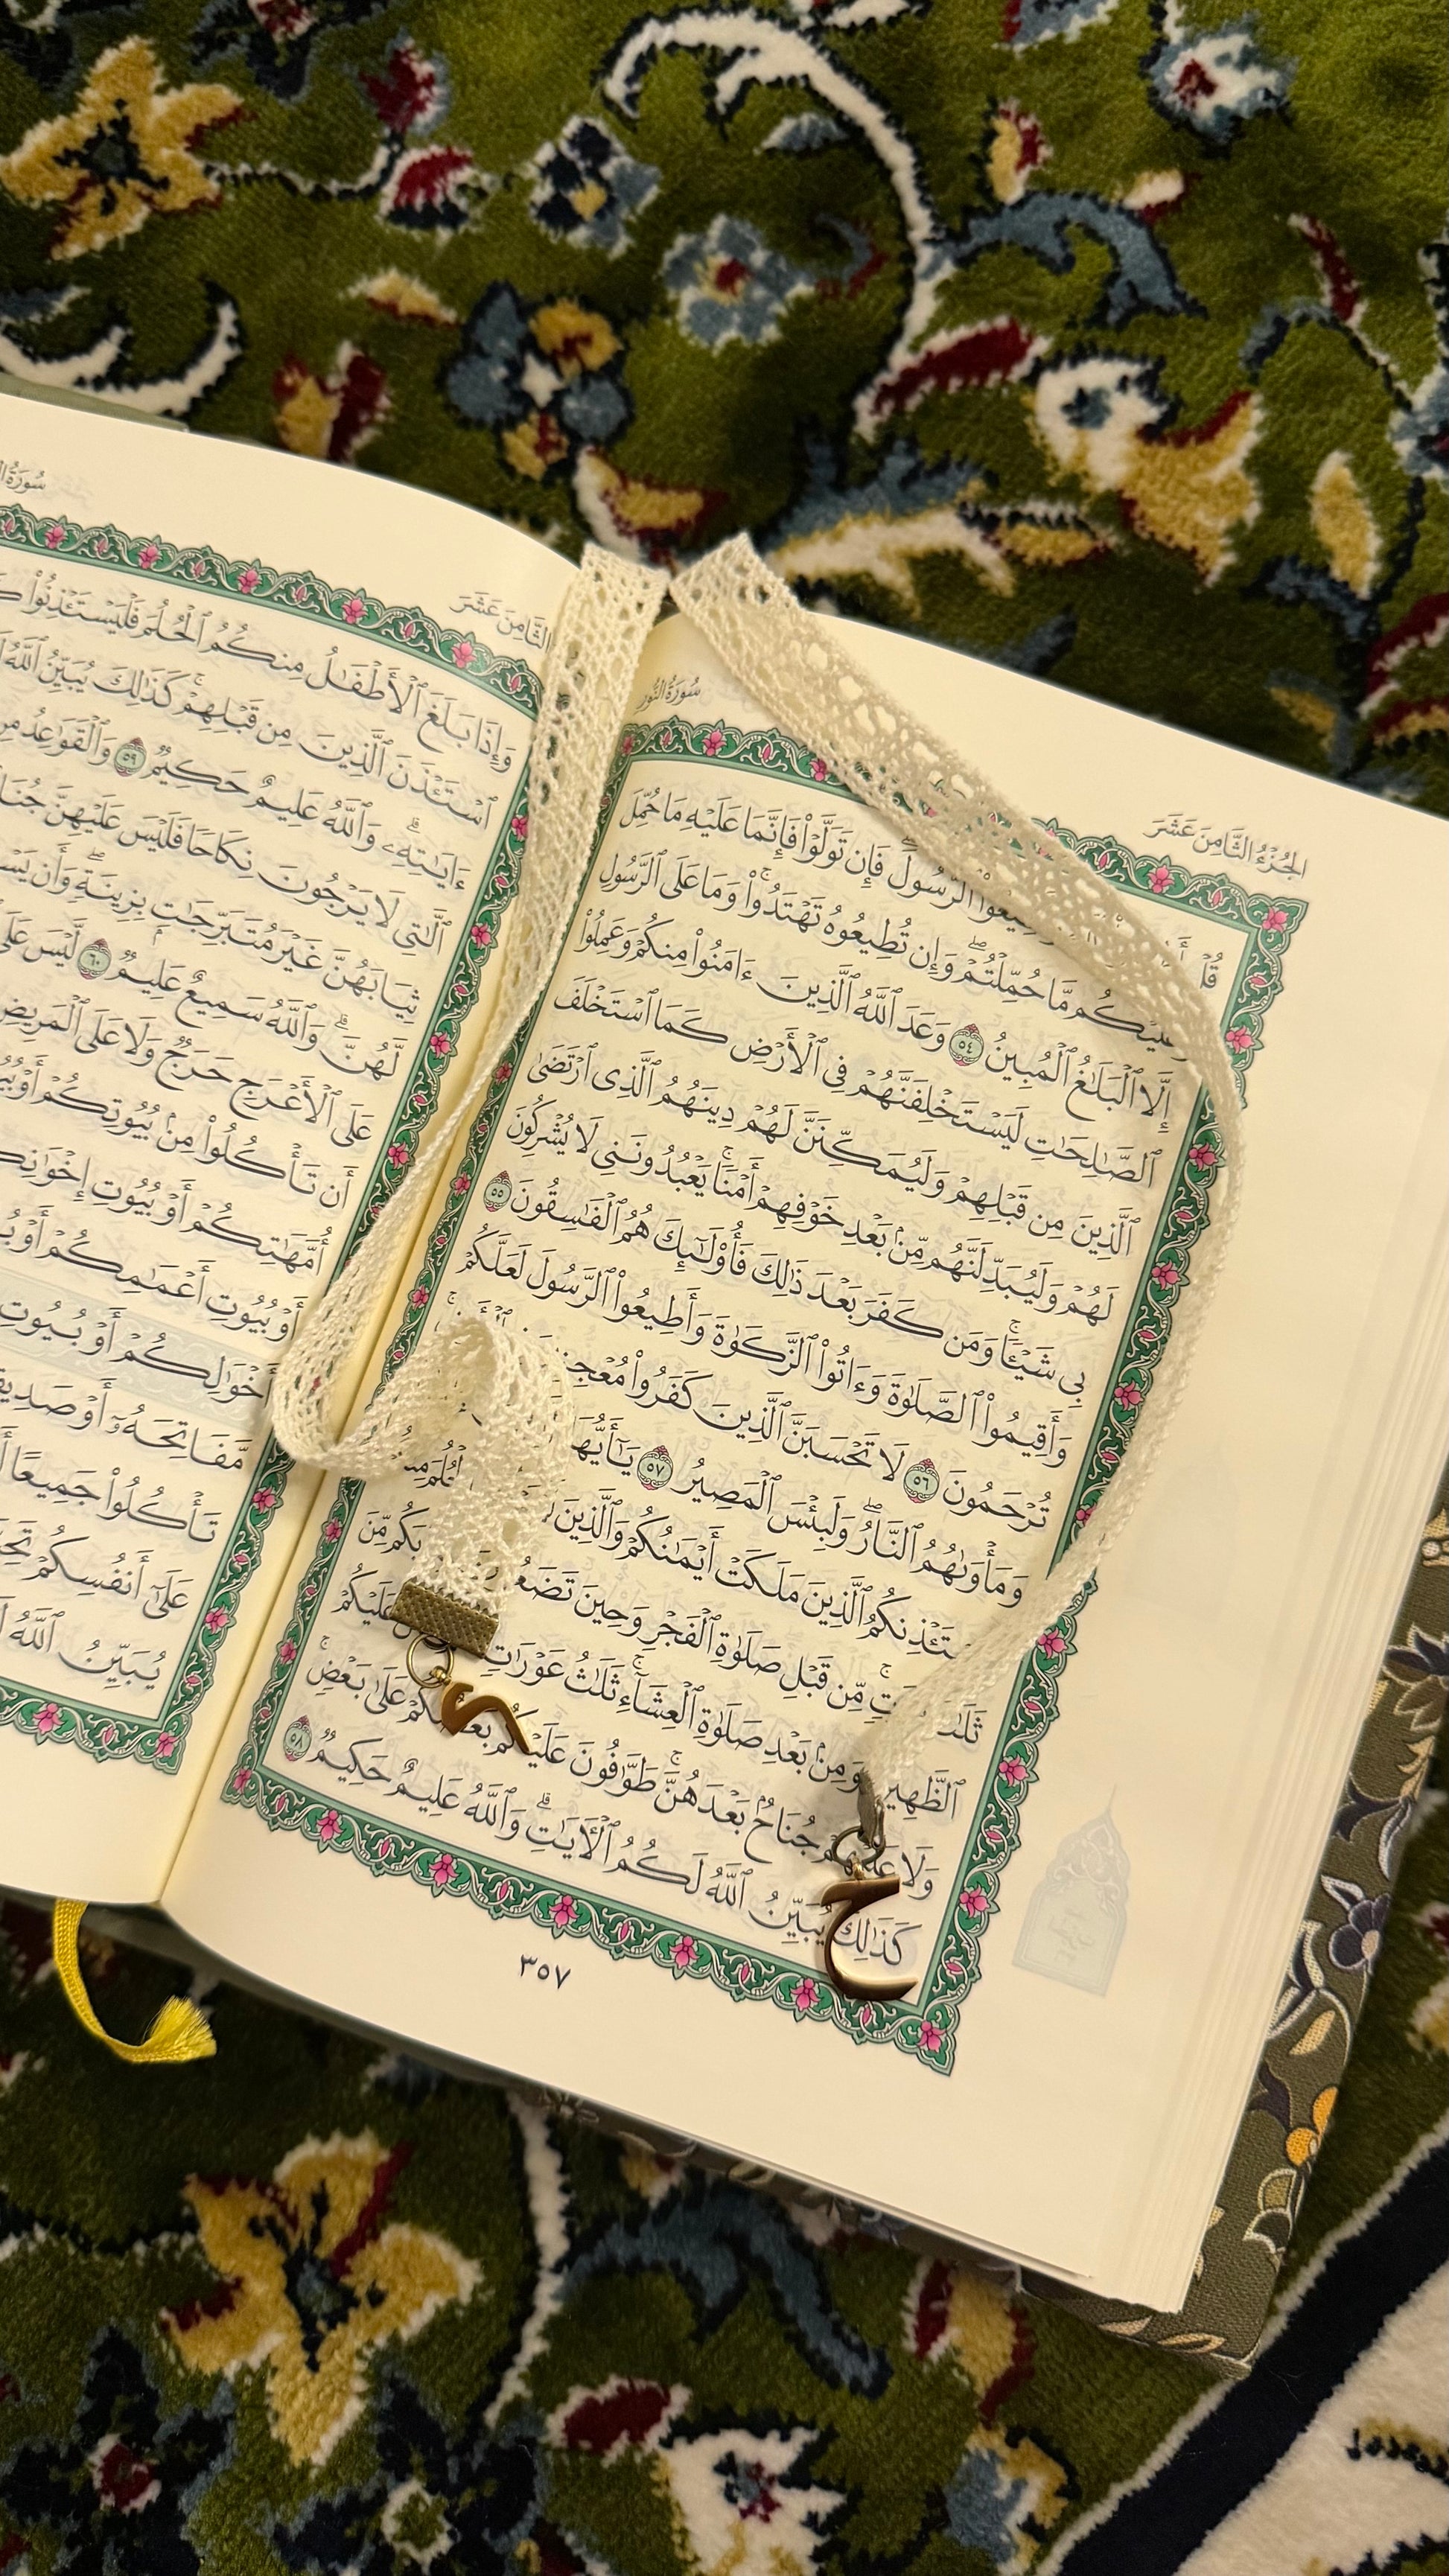 سُورَةُ النُّورِ
الجُزْءُ الثَّامِنَ عَشَرَ
ٱلرَّسُولَ فَإِن تَوَلَّوْا۟ فَإِنَّمَا عَلَيْهِ مَا حُمِّلَ
وَعَلَيْكُم مَّا حُمِّلْتُمْ ۖ وَإِن تُطِيعُوهُ تَهْتَدُوا۟ ۚ وَمَا عَلَى ٱلرَّسُولِ
إِلَّا ٱلْبَلَـٰغُ ٱلْمُبِينُ ٥٤ وَعَدَ ٱللَّهُ ٱلَّذِينَ ءَامَنُوا۟ مِنكُمْ وَعَمِلُوا۟
ٱلصَّـٰلِحَـٰتِ لَيَسْتَخْلِفَنَّهُمْ فِى ٱلْأَرْضِ كَمَا ٱسْتَخْلَفَ
ٱلَّذِينَ مِن قَبْلِهِمْ وَلَيُمَكِّنَنَّ لَهُمْ دِينَهُمُ ٱلَّذِى ٱرْتَضَىٰ
لَهُمْ وَلَيُبَدِّلَنَّهُم مِّنۢ بَعْدِ خَوْفِهِمْ أَمْنًا ۚ يَعْبُدُونَنِى لَا يُشْرِكُونَ
بِى شَيْـًٔا ۚ وَمَن كَفَرَ بَعْدَ ذَٰلِكَ فَأُو۟لَـٰٓئِكَ هُمُ ٱلْفَـٰسِقُونَ ٥٥
وَأَقِيمُوا۟ ٱلصَّلَوٰةَ وَءَاتُوا۟ ٱلزَّكَوٰةَ وَأَطِيعُوا۟ ٱلرَّسُولَ لَعَلَّكُمْ
تُرْحَمُونَ ٥٦ لَا تَحْسَبَنَّ ٱلَّذِينَ كَفَرُوا۟
وَمَأْوَىٰهُمُ ٱلنَّارُ ۖ وَلَبِئْسَ ٱلْمَصِيرُ ٥٧
ٱلَّذِينَ مَلَكَتْ أَيْمَـٰنُكُمْ وَٱلَّذِينَ
مِّن قَبْلِ صَلَوٰةِ ٱلْفَجْرِ وَحِينَ
وَمِنۢ بَعْدِ صَلَوٰةِ ٱلْعِشَآءِ ۚ ثَلَـٰثُ عَوْرَٰتٍ عَلَيْكُمْ
وَلَا جُنَاحٌۢ بَعْدَهُنَّ ۚ طَوَّٰفُونَ عَلَيْكُم عَلَىٰ بَعْضٍ ۚ
كَذَٰلِكَ يُبَيِّنُ ٱللَّهُ لَكُمُ ٱلْـَٔايَـٰتِ ۗ وَٱللَّهُ عَلِيمٌ حَكِيمٌ ٥٨
٣٥٧
الثَّامِنَ عَشَرَ
وَإِذَا بَلَغَ ٱلْأَطْفَـٰلُ مِنكُمُ ٱلْحُلُمَ فَلْيَسْتَـْٔذِنُوا۟
ٱسْتَـْٔذَنَ ٱلَّذِينَ مِن قَبْلِهِمْ ۚ كَذَٰلِكَ يُبَيِّنُ ٱللَّهُ
ءَايَـٰتِهِۦ ۗ وَٱللَّهُ عَلِيمٌ حَكِيمٌ ٥٩ وَٱلْقَوَٰعِدُ
ٱلَّـٰتِى لَا يَرْجُونَ نِكَاحًا فَلَيْسَ عَلَيْهِنَّ
ثِيَابَهُنَّ غَيْرَ مُتَبَرِّجَـٰتٍۭ بِزِينَةٍ ۖ وَأَن
لَّهُنَّ ۗ وَٱللَّهُ سَمِيعٌ عَلِيمٌ ٦٠ لَّيْسَ
عَلَى ٱلْأَعْرَجِ حَرَجٌ وَلَا عَلَى ٱلْمَرِيضِ
أَن تَأْكُلُوا۟ مِنۢ بُيُوتِكُمْ أَوْ
أُمَّهَـٰتِكُمْ أَوْ بُيُوتِ
أَوْ بُيُوتِ أَعْمَـٰمِكُمْ أَوْ
أَخْوَٰلِكُمْ أَوْ بُيُوتِ
مَّفَاتِحَهُۥٓ أَوْ
تَأْكُلُوا۟ جَمِيعًا
عَلَىٰٓ أَنفُسِكُمْ
يُبَيِّنُ ٱللَّهُ
ح